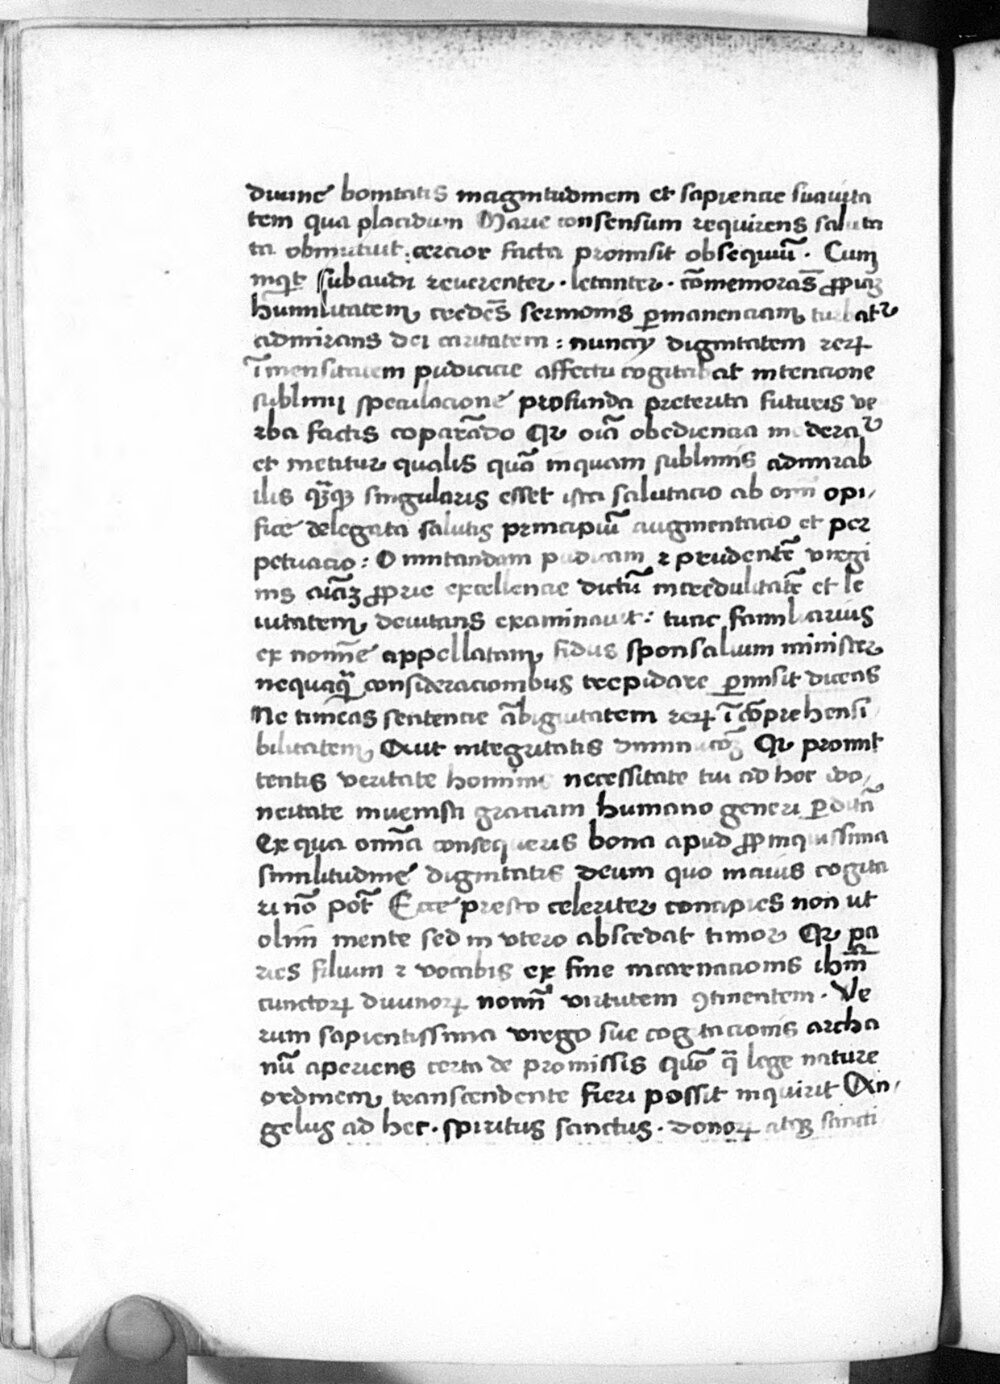 diuine bonitatis magnitudinem et sapiencie suauita
tem qua placidum Marie consensum requirens saluta
ta obmutuit : cercior facta promisit obsequiū · Cum
inq̄t subaudi reuerenter · letanter · cōmemorās ꝓpiaꝫ
humilitatem credēs sermonis ꝑmanenciam turbatᷣ
admirans dei caritatem : nuncij dignitatem reꝝ
īmensitatem pudicicie affectu cogitabat intencione
sublimi speculacione profunda preterita futuris ve
rba factis coparādo Qꝛ oīa obediencia moderaᷣ
et metitur qualis quā inquam sublimis admirab
ilis qͣꝫqꝫ singularis esset ista salutacio ab oīm opi
fice delegata salutis principiū augmentacio et per
petuacio : O imitandam pudicam ⁊ prudentē virgi
nis aīaꝫ ꝓprie excellencie dictū incredulitatē et le
uitatem deuitans examinauit : tunc familiarius
ex nomīe appellatam fidus sponsalium minister
nequaqͣ consideracionibus trepidare ꝑmisit dicens
Ne timeas sentencie ābiguitatem reꝝ īcōprehensi
bilitatem Aut integritatis Qꝛ promit
tentis veritate hominis necessitate tui ad hoc ido
neitate inuenisti graciam humano generi ꝑditā
Ex qua omīa consequeris bona apud ꝓpinquissima
similitudine dignitatis deum quo maius cogita
ri nō pōt Ecce presto celeriter concipies non ut
olim mente sed in vtero abscedat timor Qꝛ pa
ries filium ⁊ vocabis ex fine incarnacionis ihm̄
cunctoꝝ diuinoꝝ nomī virtutem ꝯtinentem · Ve
rum sapientissima virgo sue cogitacionis archa
nū aperiens certa de promissis quō q̄ lege nature
ordinem transcendente fieri possit inquirit An
gelus ad hec · spiritus sanctus · donoꝝ atqꝫ sancti